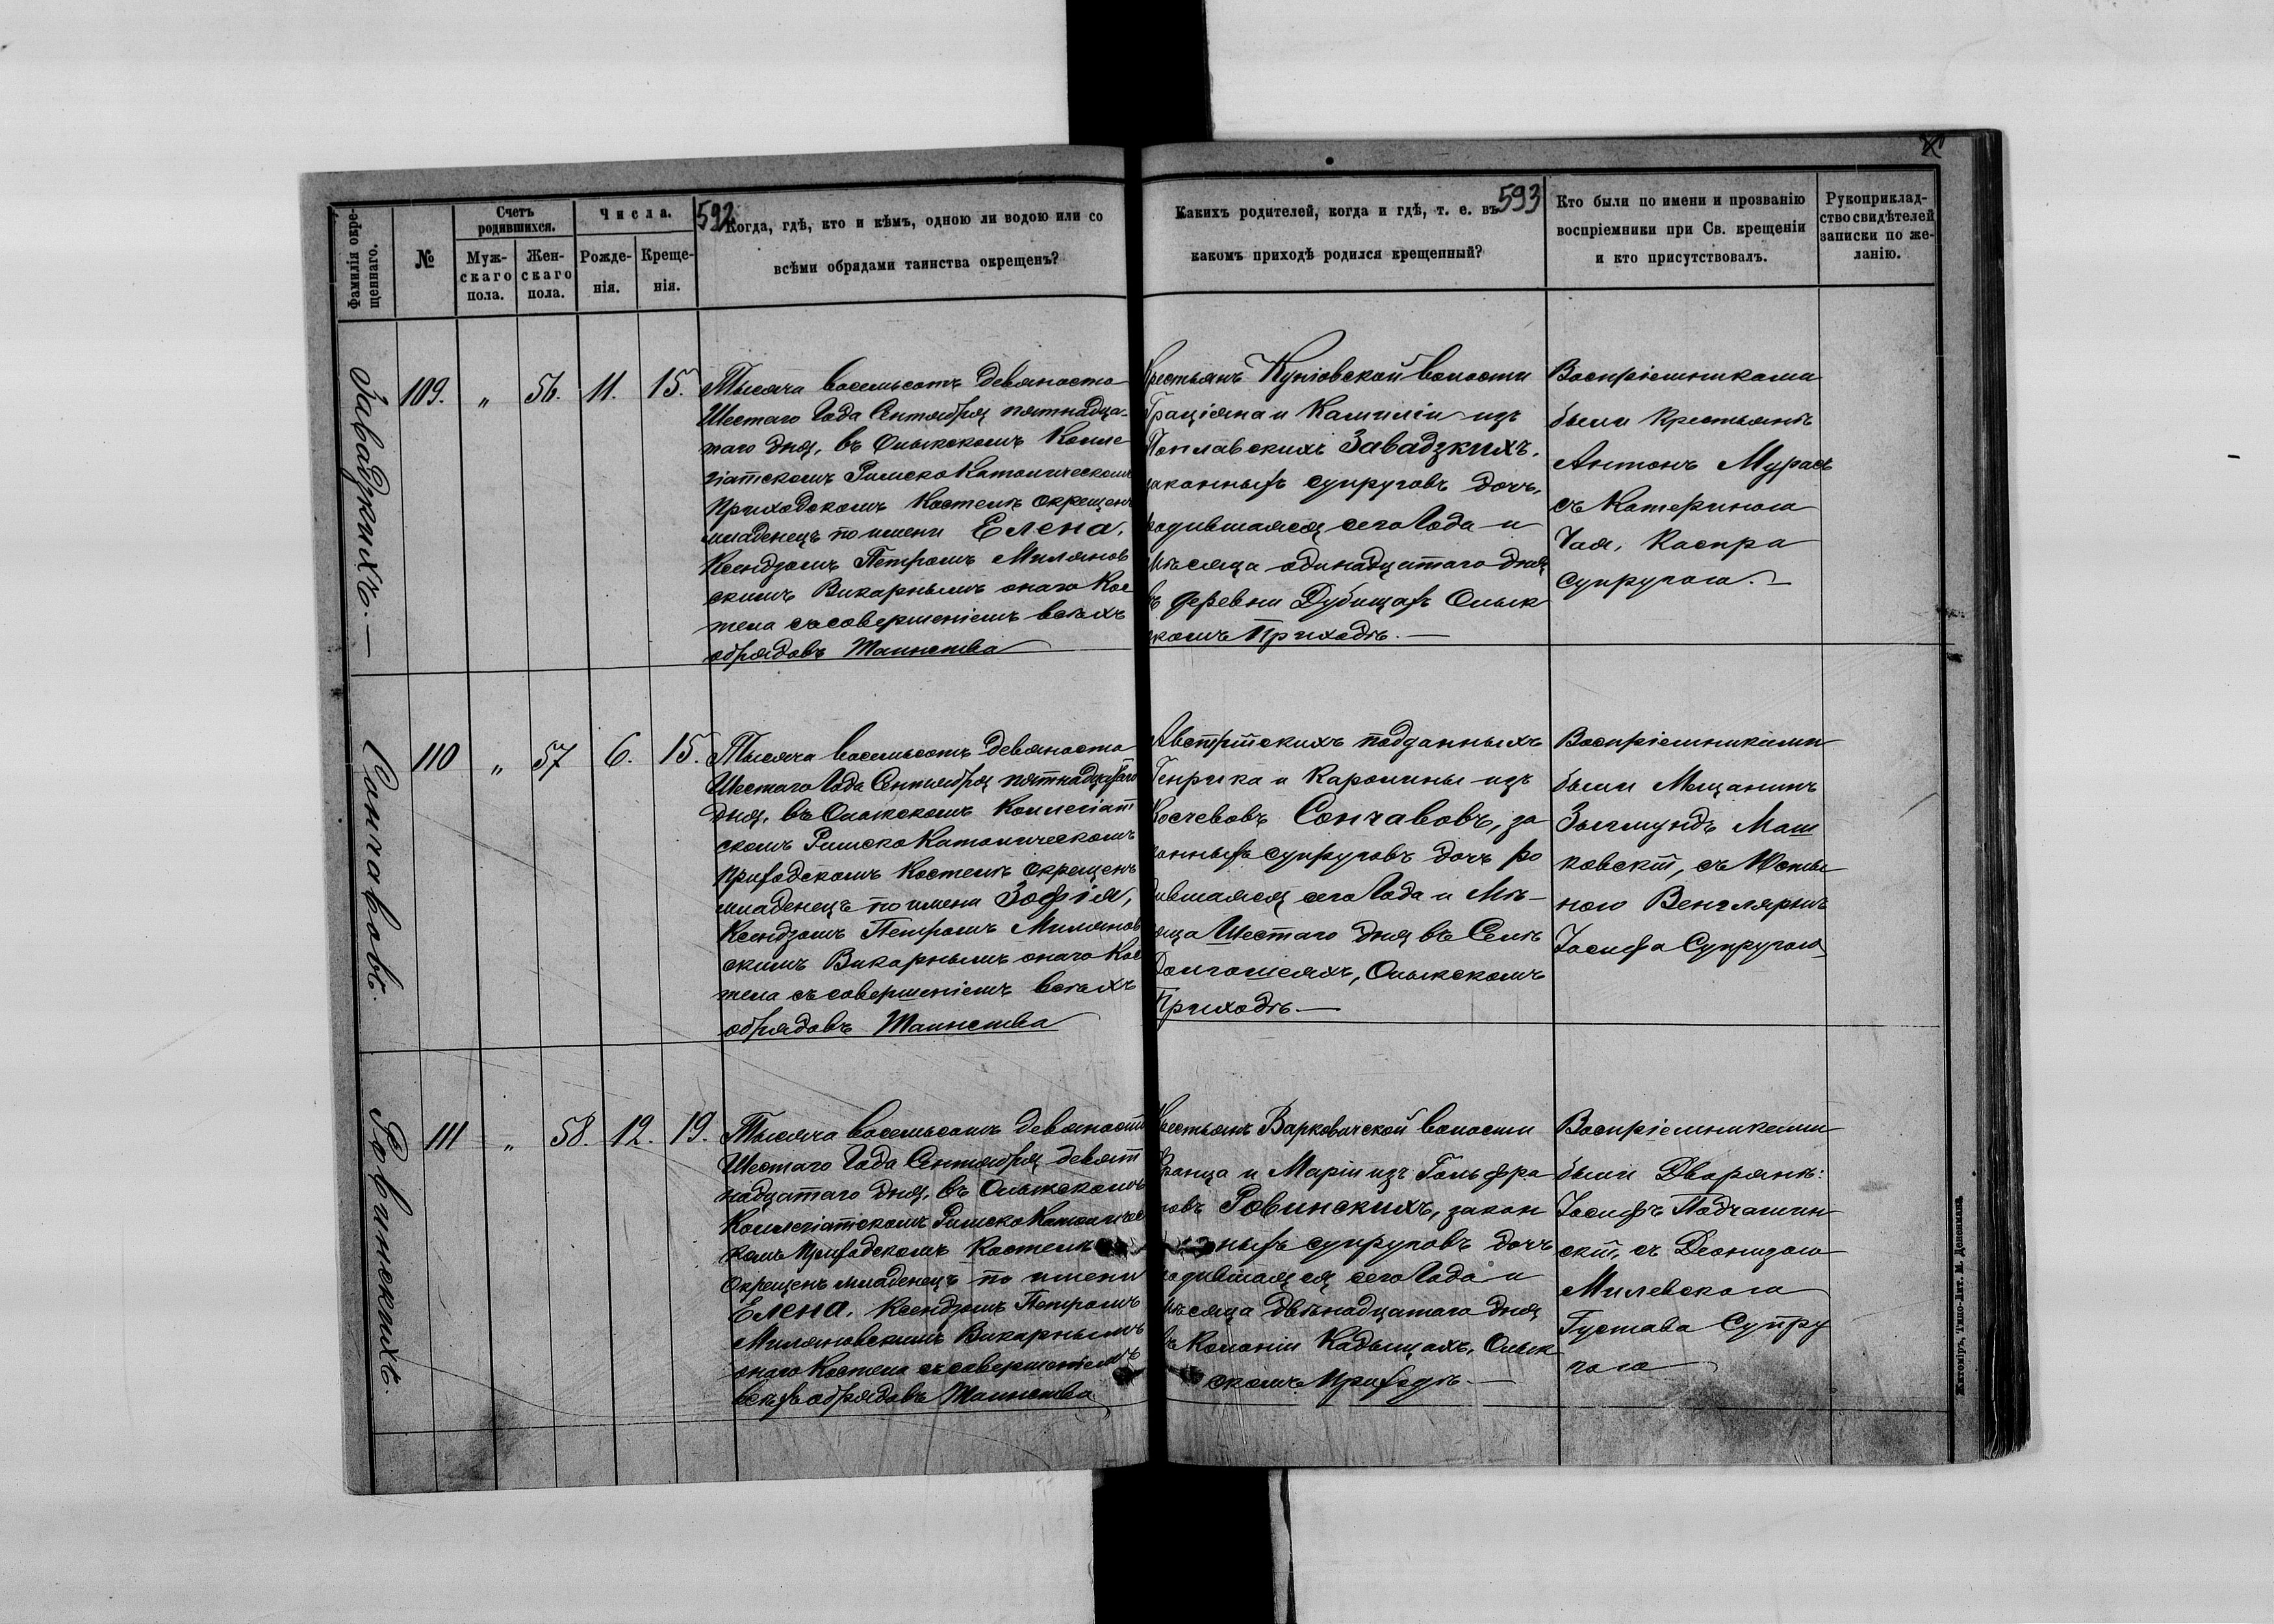 592
593
Фамилія окре-
щеннаго.
№
Счетъ
родившихся.
Муж-
скаго
пола.
Жен-
скаго
пола.
Числа.
Рожде-
нія.
Креще-
нія.
Когда, гдѣ, кто и кѣмъ, одною ли водою или со
всѣми обрядами таинства окрещенъ?
Какихъ родителей, когда и гдѣ, т. е. въ
какомъ приходѣ родился крещенный?
Кто были по имени и прозванію
воспріемники при Св. крещеніи
и кто присутствовалъ.
Рукоприклад-
ство свидѣтелей
записки по же-
ланію.
Завадзкихъ.—
109. „ 56. 11. 15.
Тысяча восемьсотъ девяносто
Шестаго Года Сентября пятнадца-
таго дня, въ Олыкскомъ Колле
гіатскомъ Римско Католическомъ
Приходскомъ Костелѣ окрещенъ
младенецъ по имени Елена,
Ксендзомъ Петромъ Миляновс
скимъ Викарнымъ онаго Кос
тела съ совершеніемъ всѣхъ
обрядовъ Таинства
Крестьянъ волости
Граціяна и Камиліи изъ
Поплавскихъ Завадзкихъ,
законныхъ супруговъ дочь,
родившаяся сего Года и
Мѣсяца одинадцатаго дня
въ деревни Дубищахъ Олык
скомъ Приходѣ.—
Воспріемниками
были Крестьянѣ
Антонъ
съ Катериною
Каспра
супругою.—
110 „ 57 6. 15.
Тысяча восемьсотъ девяносто
Шестаго Года Сентября пятнадцатаго
дня, въ Олыкскомъ Коллегіат
скомъ Римско Католическомъ
Приходскомъ Костелѣ окрещенъ
младенецъ по имени Зофія,
Ксендзомъ Петромъ Миляновс
скимъ Викарнымъ онаго Кос
тела съ совершеніемъ всѣхъ
обрядовъ Таинства
Австрійскихъ подданныхъ
Генрика и Каролины изъ
за
конныхъ супруговъ дочь ро
дившаяся сего Года и Мѣ-
сяца Шестаго дня въ Селѣ
Долгошеяхъ, Олыкскомъ
Приходѣ—
Воспріемниками
были Мѣщанинъ
Зыгмундъ Маш
ковскій, съ Юсты
ною
Іосифа Супругою
Ровинскихъ.
111 „ 58. 12. 19.
Тысяча восемьсотъ девяносто
Шестаго Года Сентября девят
надцатаго дня, въ Олыкскомъ
Коллегіатскомъ Римско Католичес
комъ Приходскомъ Костелѣ
Окрещенъ младенецъ по имени
Елена, Ксендзомъ Петромъ
Миляновскимъ Викарнымъ
онаго Костела съ совершеніемъ
всѣхъ обрядовъ Таинства
Крестьянъ Варковичской волости
Франца и Маріи изъ Гольфра
новъ Ровинскихъ, закон
ныхъ супруговъ дочь
родившаяся сего Года и
Мѣсяца двѣнадцатаго дня
въ Колоніи Кадыщахъ, Олык
скомъ Приходѣ—
Воспріемниками
были Дворянѣ:
Іосифъ
скій, съ Деонизою
Милевскаго
Густава Супру
гою
Житоміръ, Типо-Лит. М. Дененмана.